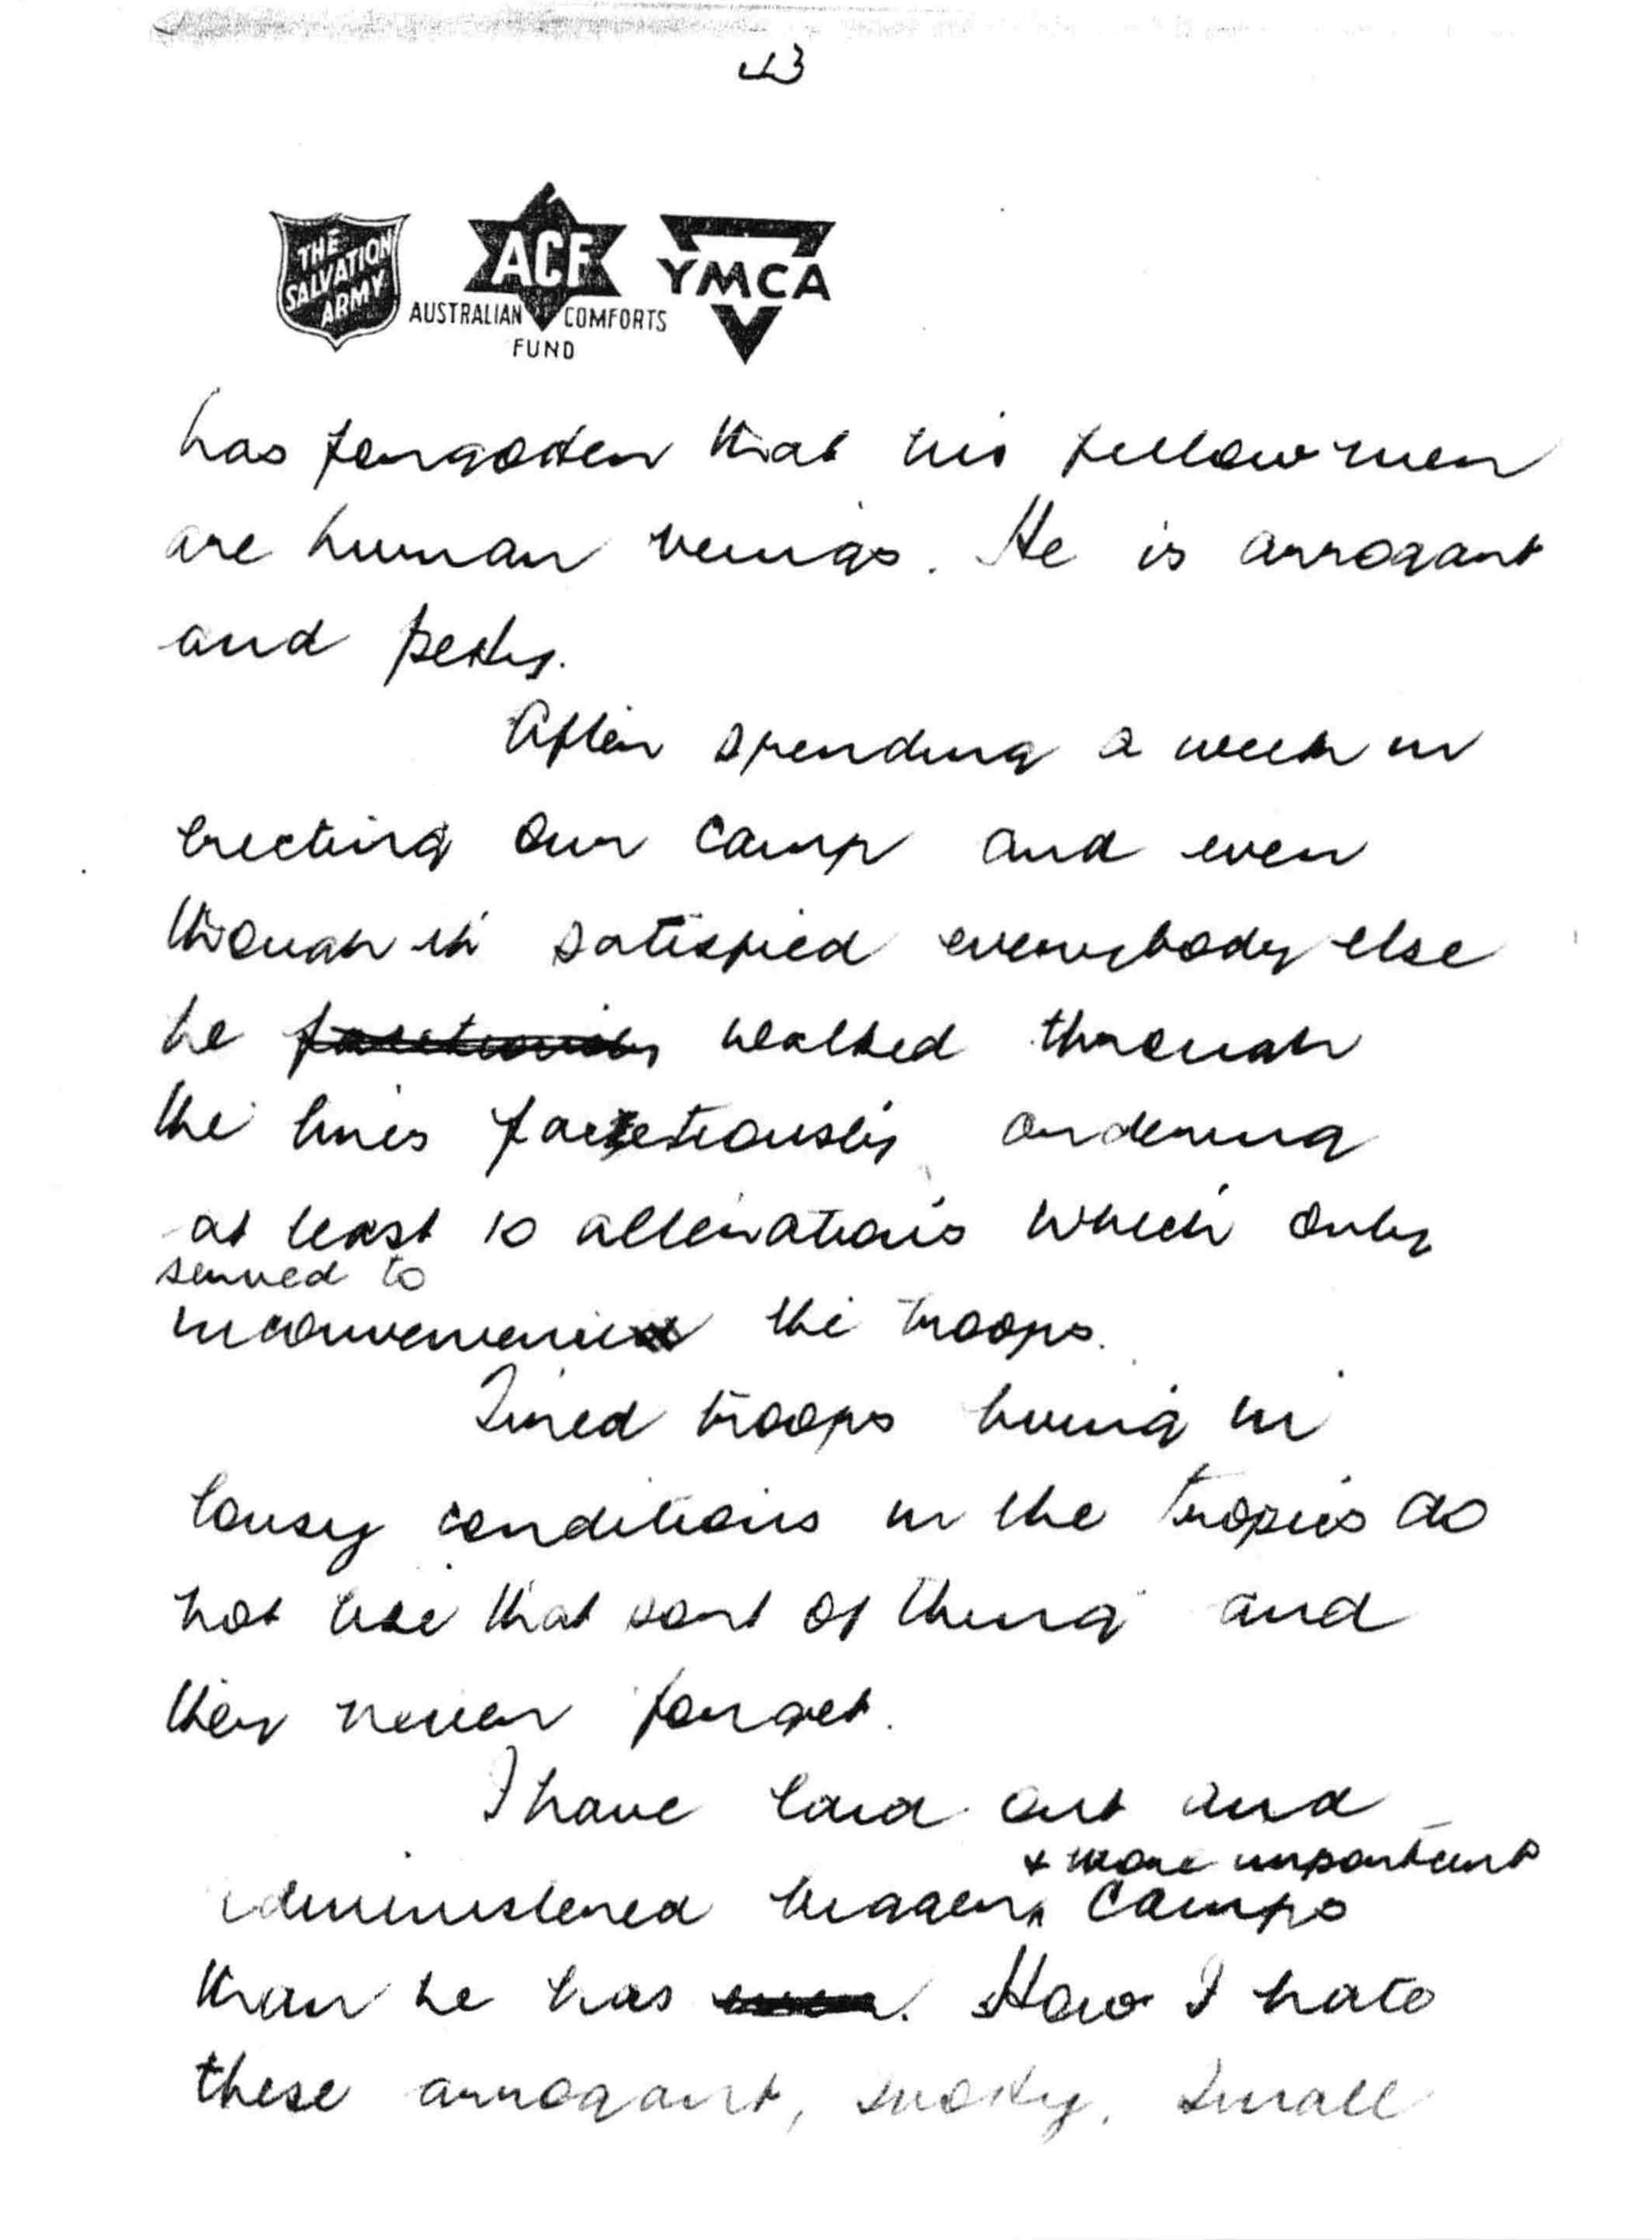 43
THE SALVATION ARMY
ACF
AUSTRALIAN COMFORTS FUND
YMCA
has forgotten that his fellow men
are human beings. He is arrogant
and petty.
After spending a week in
erecting our camp and even
though it satisfied everybody else
he walked through
the lines facetiously ordering
at least 10 alterations which only
served to
inconvenience the troops.
Tired troops living in
lousy conditions in the tropics do
not like that sort of thing and
they never forget.
I have laid out and
+ more important
administered bigger camps
than he has. How I hate
these arrogant, snotty, small